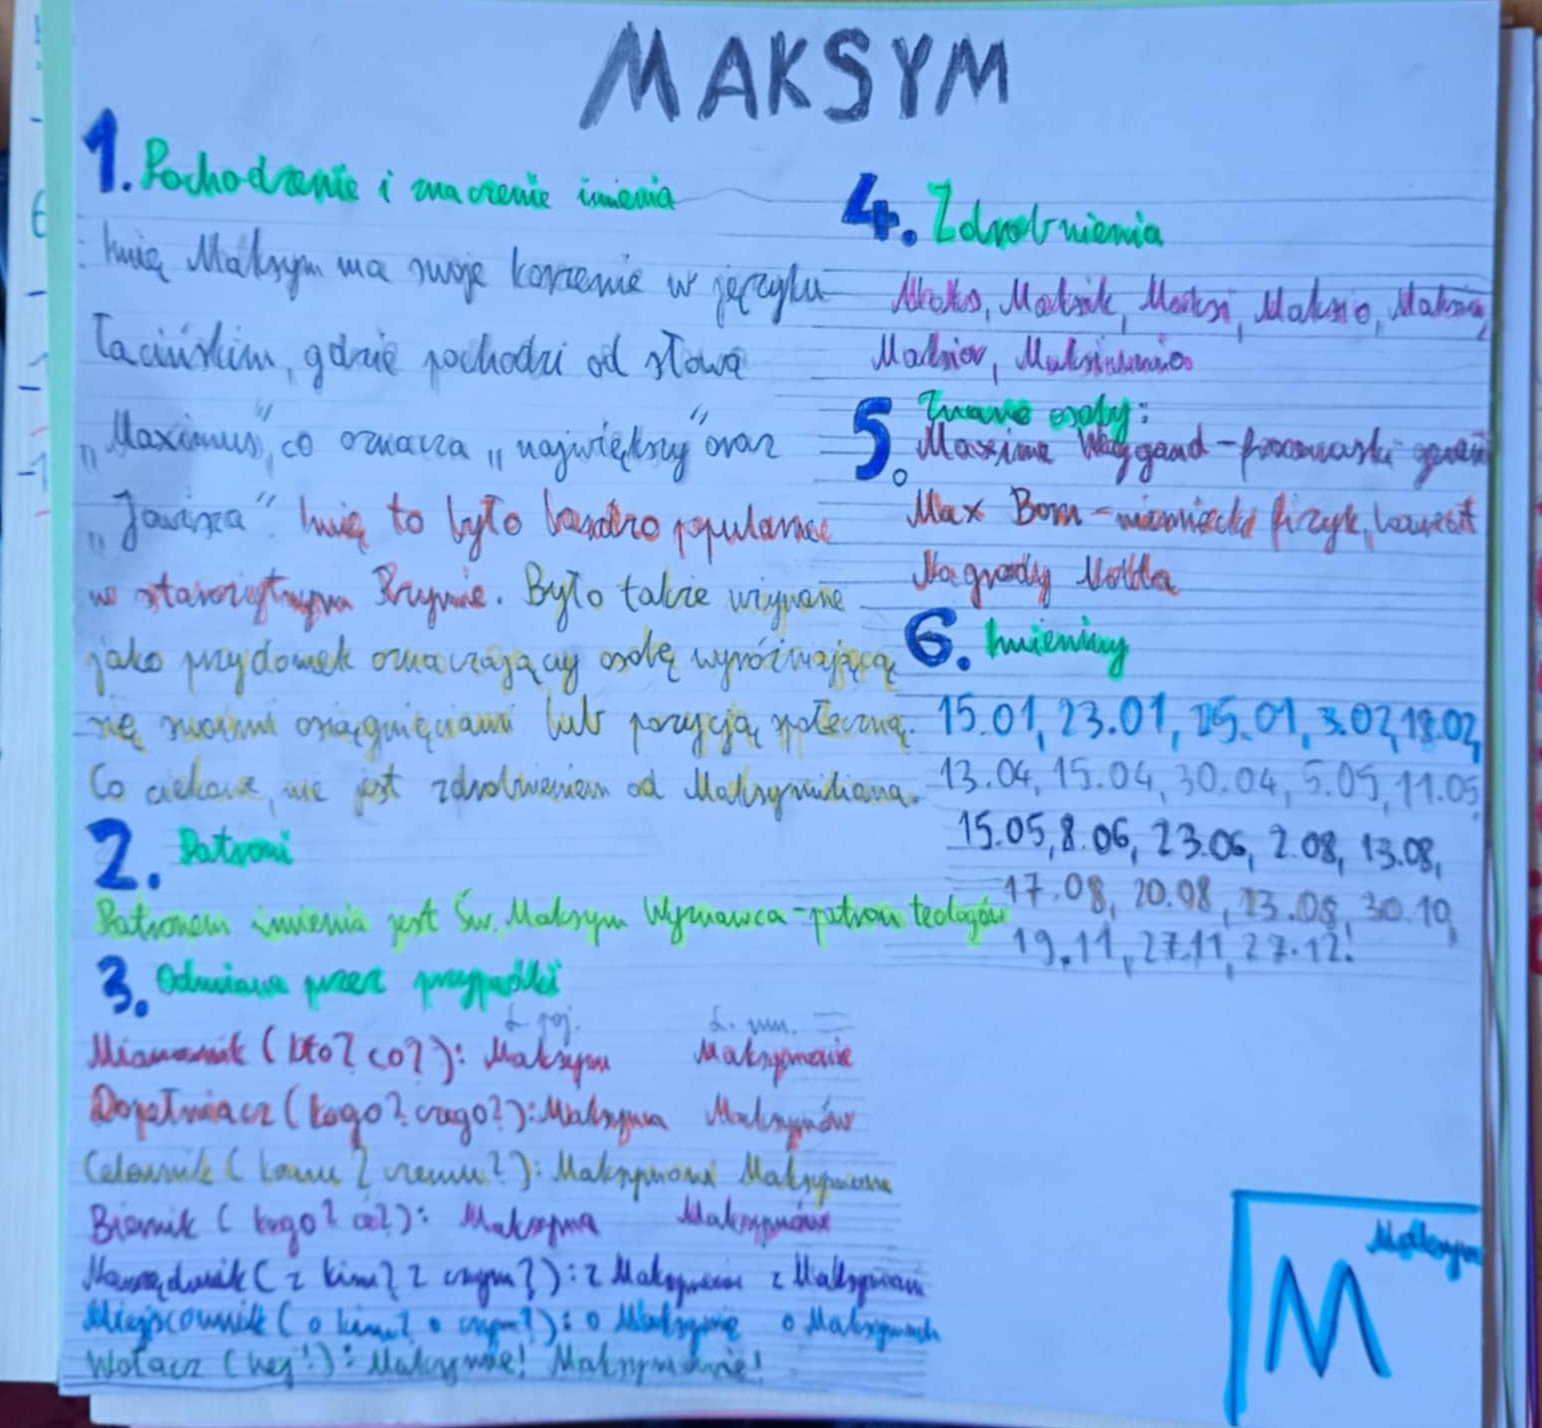 MAKSYM
1. Pochodzenie i znaczenie imienia
Imię Maksym ma swoje korzenie w języku
łacińskim, gdzie pochodzi od słowa
„Maximus”, co oznacza „największy” oraz
„Jowisza”. Imię to było bardzo popularne
w starożytnym Rzymie. Było także używane
jako przydomek oznaczający osobę wyróżniającą
się swoimi osiągnięciami lub pozycją społeczną.
Co ciekawe, nie jest zdrobnieniem od Maksymiliana.
2. Patroni
Patronem imienia jest Św. Maksym Wyznawca - patron teologów
3. Odmiana przez przypadki
L. poj. L. mn.
Mianownik (kto? co?): Maksym Maksymowie
Dopełniacz (kogo? czego?): Maksyma Maksymów
Celownik (komu? czemu?): Maksymowi Maksymom
Biernik (kogo? co?): Maksyma Maksymów
Narzędnik (z kim? z czym?): z Maksymem z Maksymami
Miejscownik (o kim? o czym?): o Maksymie o Maksymach
Wołacz (hej!): Maksymie! Maksymowie!
4. Zdrobnienia
Maks, Maksik, Maksi, Maksio,
5. Znane osoby:
Maxime Weygand - francuski
Max Born - niemiecki fizyk, laureat
Nagrody Nobla
6. Imieniny
15.01, 23.01, 25.01, 3.02, 18.02,
13.04, 15.04, 30.04, 5.05, 11.05,
15.05, 8.06, 23.06, 2.08, 13.08,
17.08, 20.08, 30.10,
19.11, 27.11, 27.12!
Maksym
M